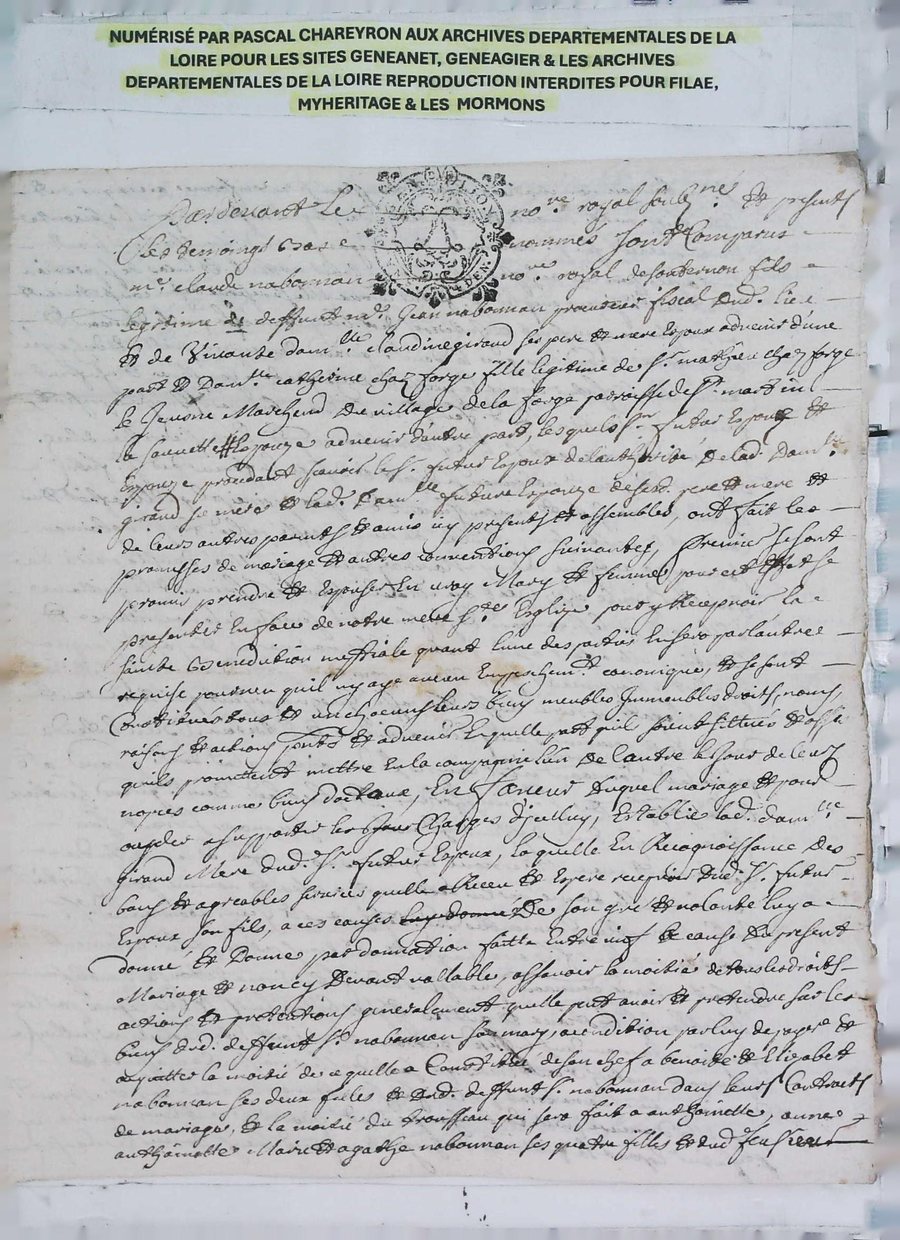 NUMÉRISÉ PAR PASCAL CHAREYRON AUX ARCHIVES DEPARTEMENTALES DE LA
LOIRE POUR LES SITES GENEANET, GENEAGIER & LES ARCHIVES
DEPARTEMENTALES DE LA LOIRE REPRODUCTION INTERDITES POUR FILAE,
MYHERITAGE & LES MORMONS
Pardevant Le no.re royal soubs.né & presents
Les temoings nommés sont Comparus
m.e claude nabonnan no.re royal de fils
legitime de deffunt m.e Jean nabonnan procureur fiscal dud. lieu
et de Vivante dam.lle claudine giraud ses pere et mere Espoux advenir d'une
part & Dam.lle catherine chaz forge fille legitime de S.r mathieu chaz forge
le Jeusne Marchand Du village de la forge parroisse de S.t martin
la sauvetté Espouze advenir d'autre part, lesquels S.r futur Espoux &
Espouze procedant scavoir led. S.r futur Espoux de l'authorité De lad. Dam.lle
giraud sa mere & lad. Dam.lle future Espouze de sesd. pere & mere &
de leurs autres parents & amis icy presents & assembles, ont fait les
promesses de mariage & autres conventions suivantes, Premier se sont
promis prendre & Espouser En vray Mary & femme pour cet Effet se
presenter En face de notre mere S.te Esglize pour y Recepvoir la
sainte Benediction nuptialle quant l'une des parties En sera par l'autre
requise pourveu quil n'y aye aucun Empeschem.t canonique, & se sont
Constitués tous & un chacuns leurs biens meubles Immeubles droits, noms,
raisons & actions pnts & advenir En quelle part quils soient sittués & assis
quils promettent mettre En la compagnie l'un De l'autre le Jour de leurs
nopces comme biens dottaux, En faveur duquel mariage & pour
ayder a supporter les Charges d'jcelluy, Establie lad. dam.lle
giraud Mere dud. S.r futur Espoux, laquelle En Recognoissance Des
bons & agreables services quelle a Receu & Espere recepvoir dud. S.r futur
Espoux son fils, a ces causes De son gré & volonté luy a
donné & Donne par donnation faitte Entre vifs & cause Du present
Mariage & Devant vallable, assavoir la moitié de tous les droits
actions & pretentions generalement quelle peut avoir & pretendre sur les
biens dud. deffunt S.r nabonnan son mary, a condition par luy de payer &
acquitter la moitié de ce quelle a Constitué de son chef a benoite & Elizabet
nabonnan ses deux filles & dud. deffunt S.r nabonnan dans leurs Contracts
de mariage, & la moitié du trousseau qui sera fait a anthoinette, anne
anthoinette Marie & agathe nabonnan ses quatre filles & dud. feu sieur